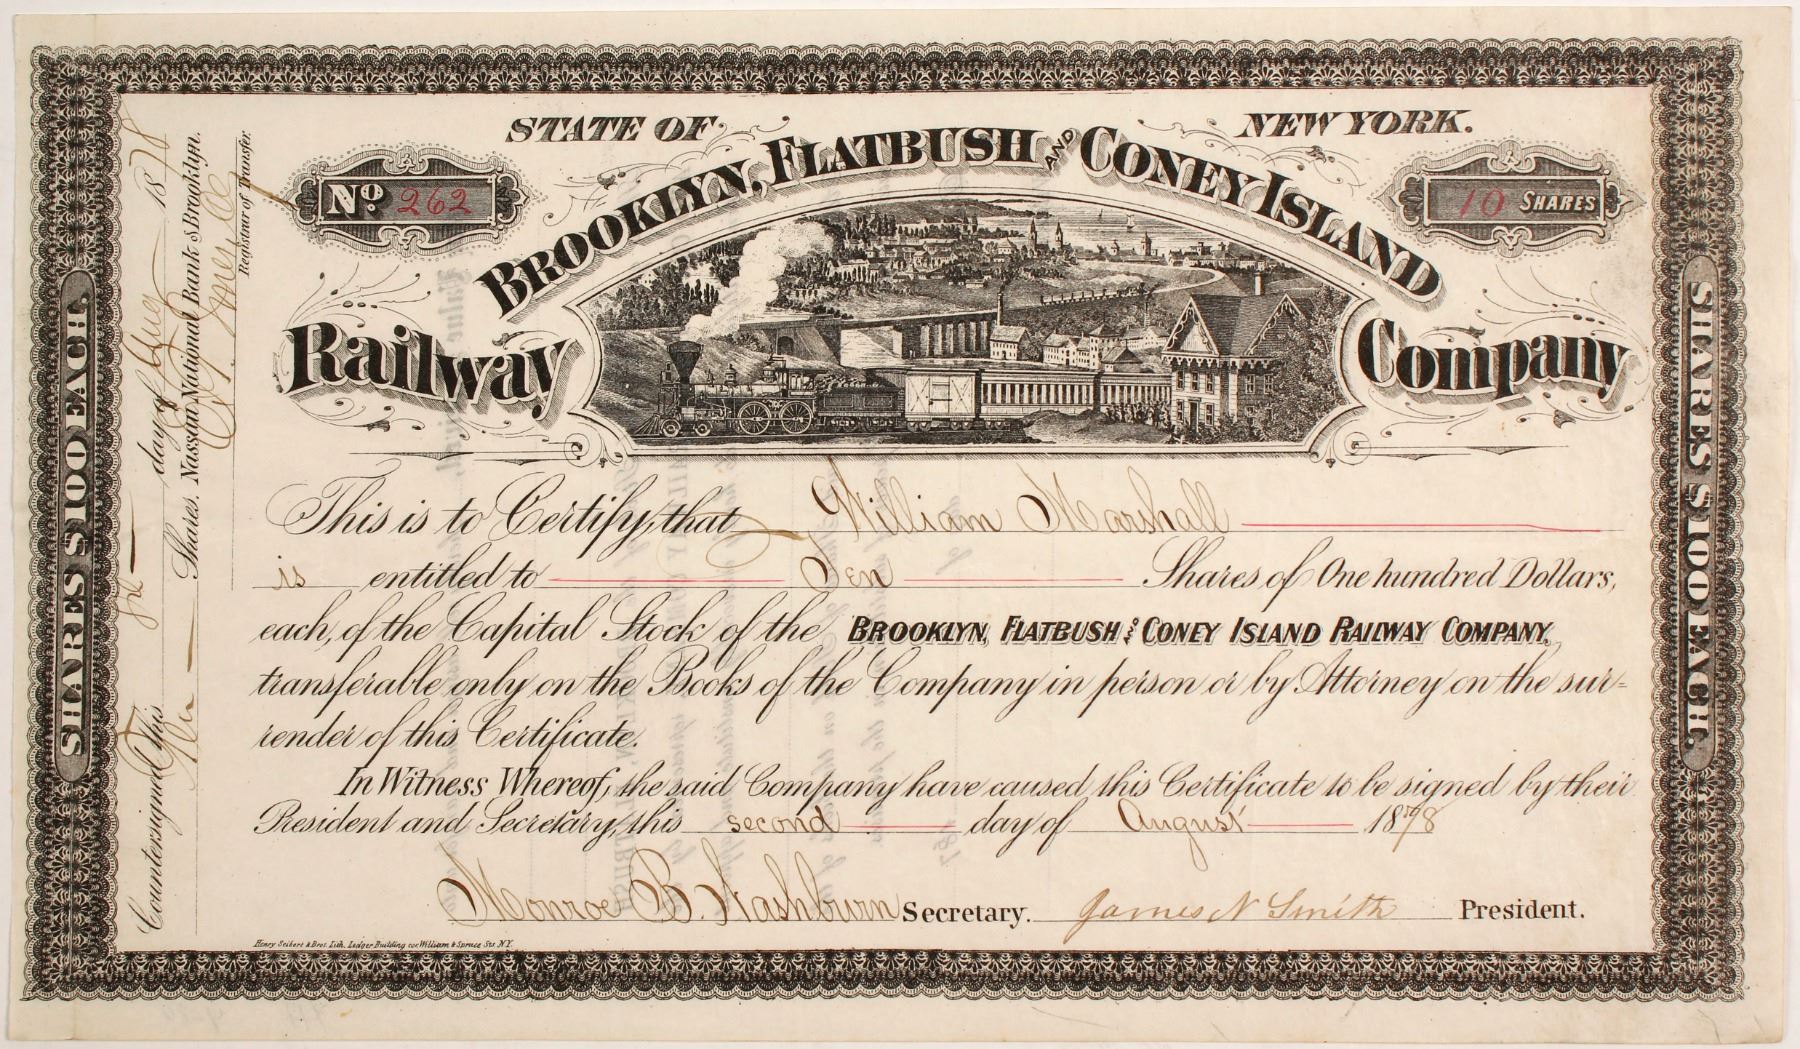 STATE OF NEW YORK.
No. 262
10 SHARES
BROOKLYN, FLATBUSH AND CONEY ISLAND
Railway Company
This is to Certify, that William Marshall
is entitled to Ten Shares of One hundred Dollars,
each, of the Capital Stock of the BROOKLYN, FLATBUSH & CONEY ISLAND RAILWAY COMPANY,
transferable only on the Books of the Company in person or by Attorney on the sur=
render of this Certificate.
In Witness Whereof, the said Company have caused this Certificate to be signed by their
President and Secretary, this second day of August 1878
Monroe B. Washburn Secretary. James N Smith President.
Henry Seibert & Bros. Lith. Ledger Building cor. William & Spruce Sts. N.Y.
SHARES $100 EACH.
SHARES $100 EACH.
Countersigned This day of Aug 1878
Ten Shares. Nassau National Bank of Brooklyn.
Registrar of Transfer.